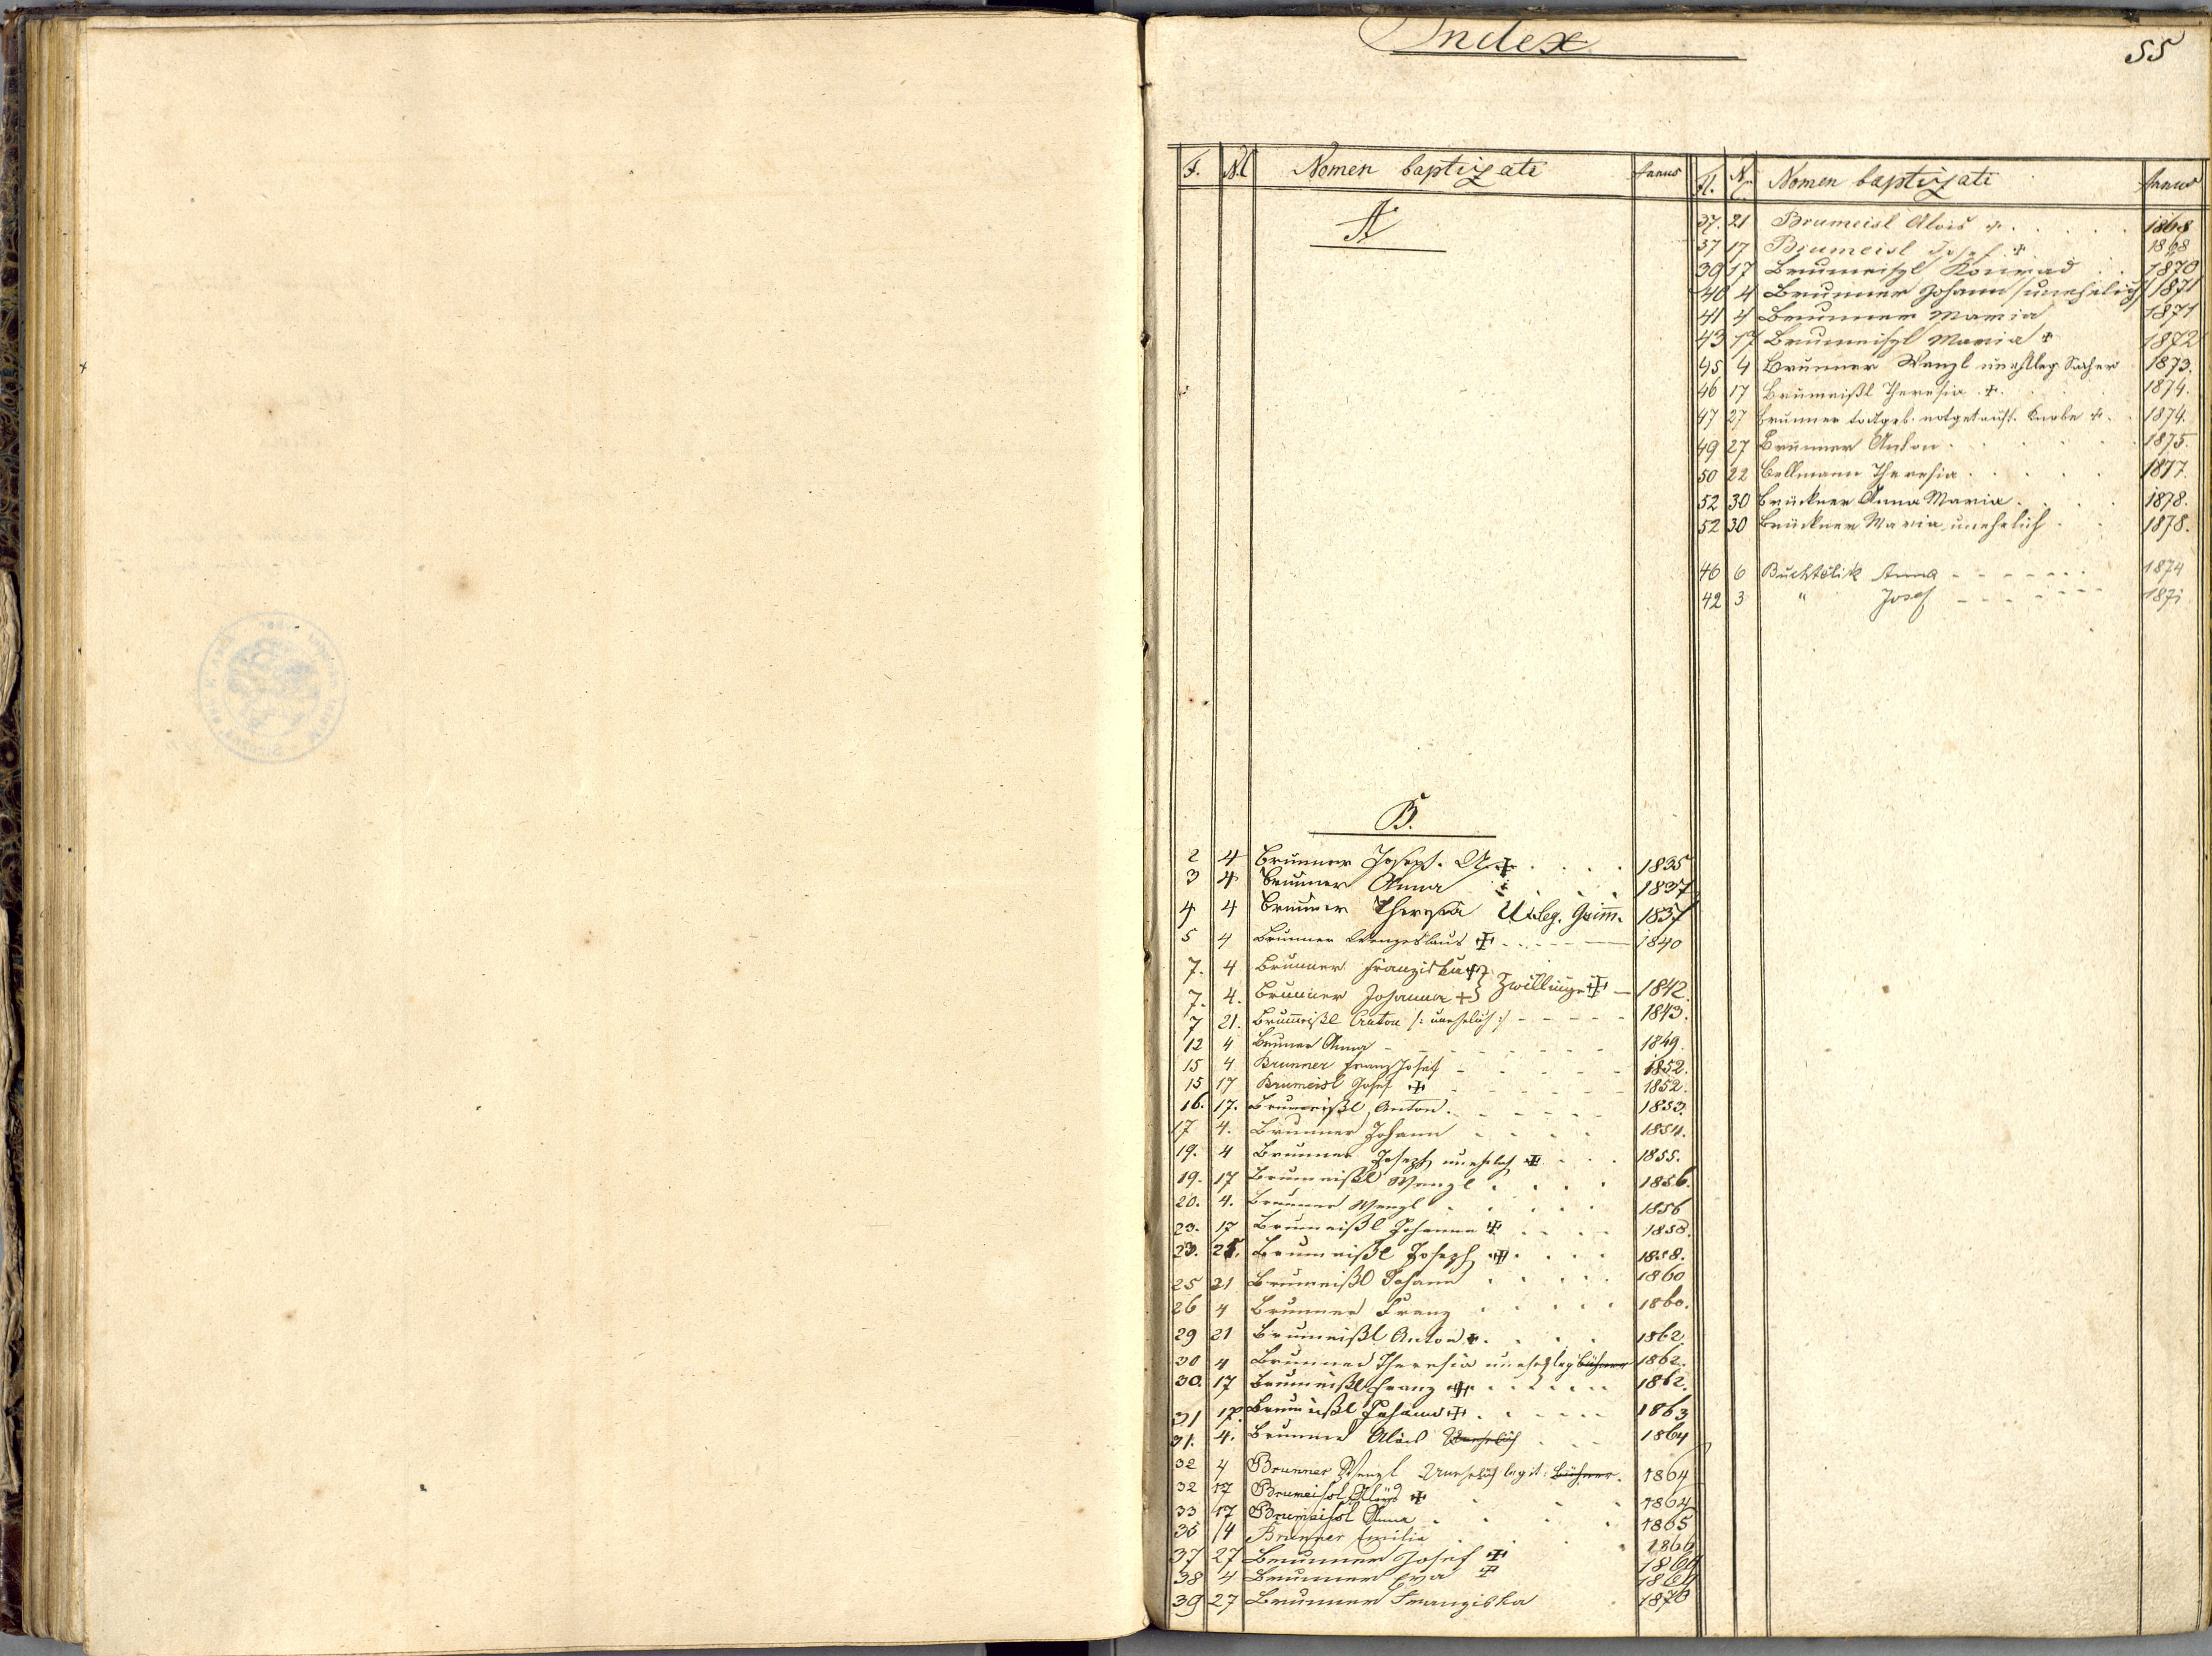 Index
55
F. N. Nomen baptizati Annus
A
B.
2 4 Brunner Joseph. 1835
3 4 Brunner Anna 1837
4 4 Brunner Theresia leg. Grim̅. 1837
5 4 Brunner Wenzeslaus ✝ 1840
7. 4 Brunner Franziska ✝ } Zwillinge ✝
7. 4. Brunner Johanna ✝ } 1842.
7 21. Brum̅eißl Anton /: unehelich :/ 1843.
12 4 Brunner Anna 1849.
15 4 Brunner Franz Josef 1852.
15 17 Brumeisl Josef ✝ 1852.
16. 17. Brumeißl Anton. 1853.
17 4. Brunner Johann 1854.
19. 4 Brunner Joseph unehelich ✝ 1855.
19. 17 Brumeißl Wenzl 1856.
20. 4. Brunner Wenzl 1856
23. 17 Brumeißl Johanna ✝ 1858.
23. 25. Brumeißl Joseph ✝ 1858.
25 21 Brumeißl Johann 1860
26 4 Brunner Franz 1860.
29 21 Brumeißl Anton ✝ 1862.
30 4 Brunner Theresia unehel leg 1862.
30. 17 Brumeißl Franz ✝ 1862.
31 17. Brumeißl Johann ✝ 1863
31. 4. Brunner Alois Unehelich 1864
32 4 Brunner Wenzl Unehelich legit: 1864
32 17 Brumeisl Alois ✝ 1864
33 17 Brumeisl Anna 1865
36 4 Brunner Emilie 1866
37 27 Brunner Josef ✝
38 4 Brunner Eva ✝
39 27 Brunner Franziska 1870
Fl. N. Nomen baptizati Annus
37. 21 Brumeisl Alois ✝ 1868
37 17 Brumeisl Josef ✝ 1868
39 17 Brumeißl Konrad 1870
40 4 Brunner Johann /unehelich/ 1871
41 4 Brunner Maria 1871
43 17 Brumeißl Maria ✝ 1872
45 4 Brunner Wenzl unehl leg Sacher 1873.
46 17 Brumeißl Theresia ✝ 1874.
47 27 Brunner todtgeb. notgetauft. Knabe ✝ 1874.
49 27 Brunner Anton 1875.
50 22 Bellmann Theresia 1877.
52 30 Brückner Anna Maria 1878.
52 30 Brückner Maria, unehelich 1878.
46 6 Buchtelik Anna 1874
42 3 " Josef 1871